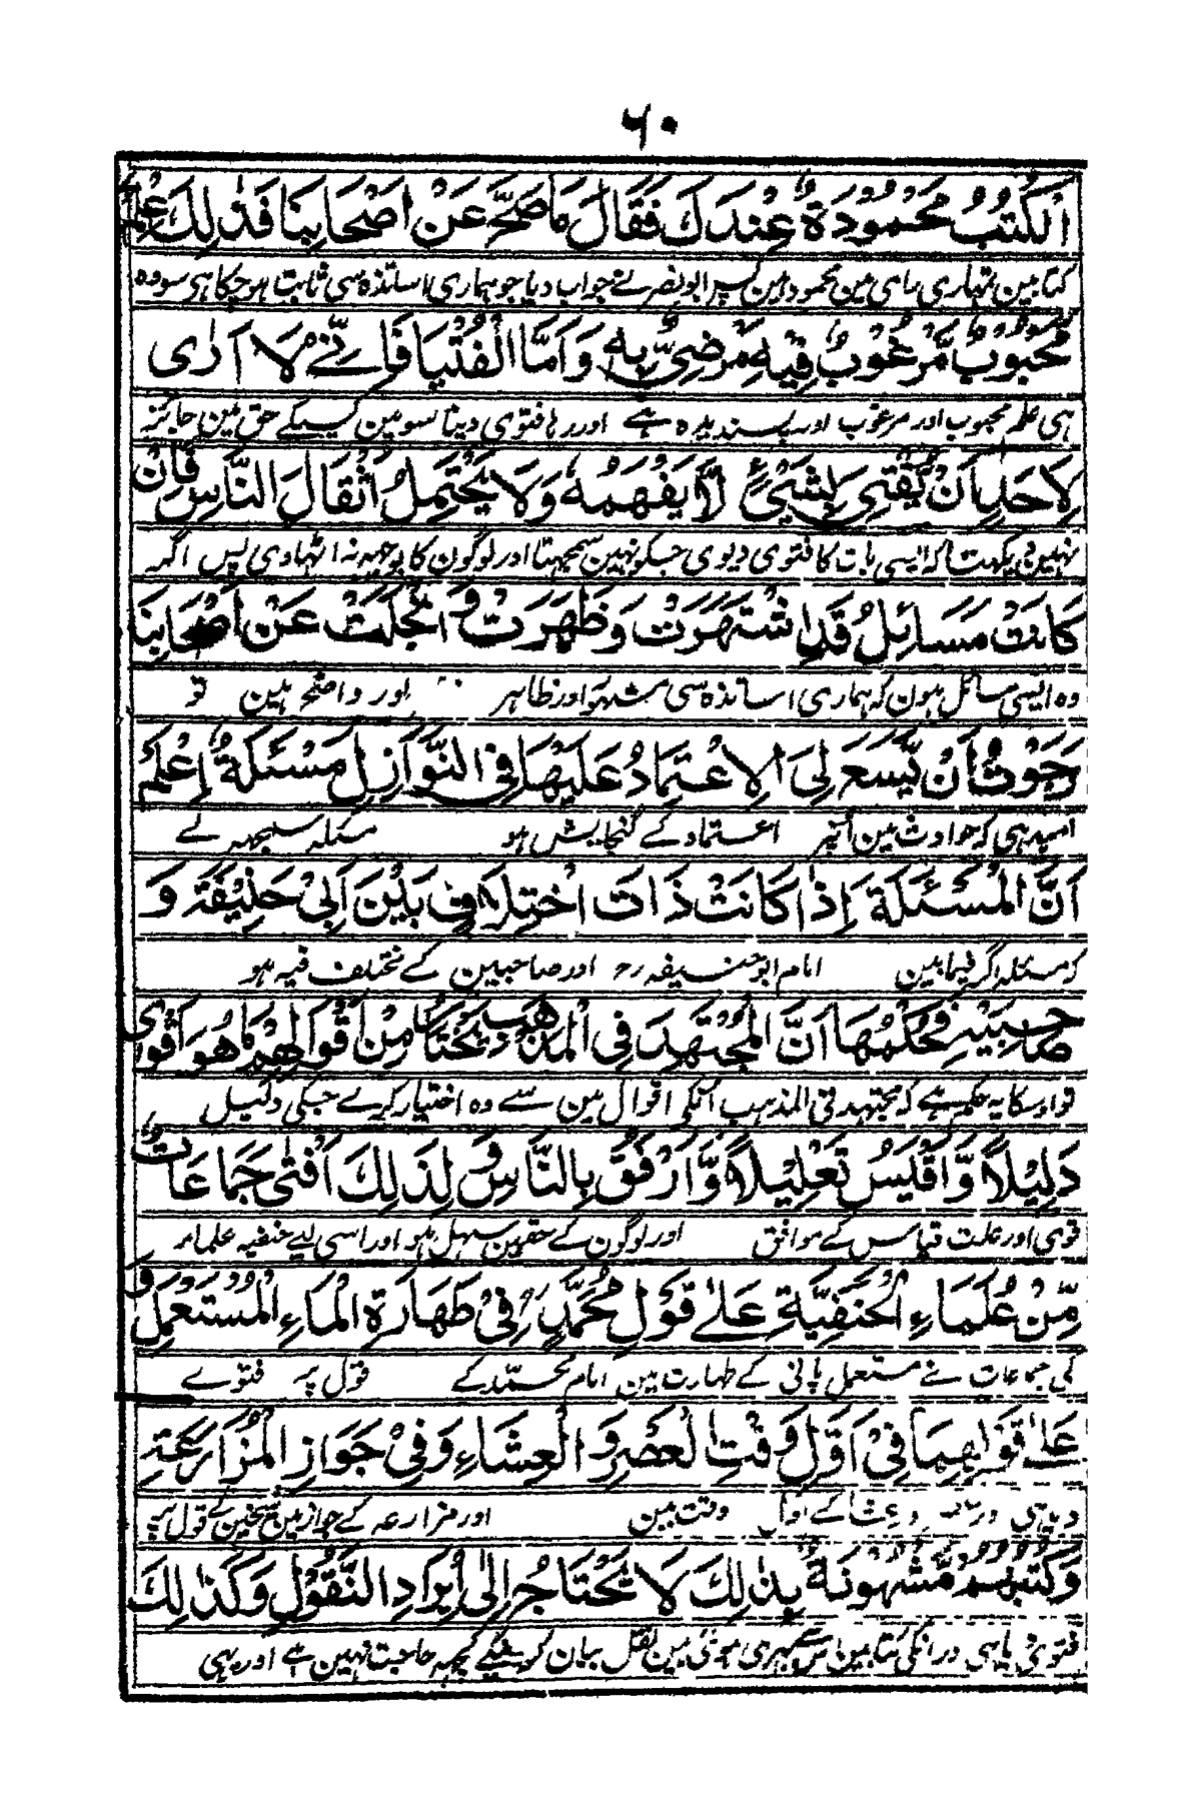 ٦٠
اَلْكُتُبُ مَحْمُوْدَةٌ عِنْدَكَ فَقَالَ مَا صَحَّ عَنْ اَصْحَابِنَا فَذٰلِكَ عِلْمٌ
کتابین تمہاری رای مین محمود ہین پس ابو نصر نے جواب دیا جو ہماری اساتذہ سی ثابت ہو چکا ہی سو وہ
مَحْبُوْبٌ مَّرْغُوْبٌ فِيْهِ مَرْضِىٌّ بِهٖ وَاَمَّا الْفُتْيَا فَاِنِّىْ لَا اَرٰى
ہی علم محبوب اور مرغوب اور پسندیدہ ہے اور رہا فتوی دینا سو مین کسیکے حق مین جائز
لِاَحَدٍ اَنْ يُّفْتِىَ بِشَيْئٍ لَّا يَفْهَمُهٗ وَلَا يَحْتَمِلُ اَثْقَالَ النَّاسِ فَاِنْ
نہین دیکھتا کہ ایسی بات کا فتوی دیوی جسکو نہین سمجھتا اور لوگون کا بوجھ نہ اٹھادی پس اگر
كَانَتْ مَسَائِلُ قَدِ اشْتَهَرَتْ وَظَهَرَتْ وَانْجَلَتْ عَنْ اَصْحَابِنَا
وہ ایسی مسائل ہون کہ ہماری اساتذہ سی مشہور اور ظاہر اور واضح ہین تو
رَجَوْتُ اَنْ يَّسَعَ لِىَ الْاِعْتِمَادُ عَلَيْهَا فِى النَّوَازِلِ مَسْئَلَةٌ اِعْلَمْ
امید ہی کہ حوادث مین انپر اعتماد کے گنجایش ہو مسئلہ سمجہہ لے
اَنَّ الْمَسْئَلَةَ اِذَا كَانَتْ ذَاتَ اخْتِلَافٍ بَيْنَ اَبِىْ حَنِيْفَةَ وَ
کہ مسئلہ اگر فیما بین امام ابو حنیفہ رح اور صاحبین کے مختلف فیہ ہو
صَاحِبَيْهِ فَحُكْمُهَا اَنَّ الْمُجْتَهِدَ فِى الْمَذْهَبِ يَخْتَارُ مِنْ اَقْوَالِهِمْ مَا هُوَ اَقْوٰى
تو اوسکا یہ حکم ہے کہ مجتہد فی المذہب انکی اقوال مین سے وہ اختیار کرے جسکی دلیل
دَلِيْلًا وَّاَقْيَسُ تَعْلِيْلًا وَّاَرْفَقُ بِالنَّاسِ وَلِذٰلِكَ اَفْتٰى جَمَاعَاتٌ
قوی اور علت قیاس کے موافق اور لوگون کے حق مین سہل ہو اور اسی لیے حنفیہ علماء
مِّنْ عُلَمَاءِ الْحَنَفِيَّةِ عَلٰى قَوْلِ مُحَمَّدٍ رح فِىْ طَهَارَةِ الْمَاءِ الْمُسْتَعْمَلِ وَ
کی جماعات نے مستعمل پانی کے طہارت مین امام محمد کے قول پر فتوے
عَلٰى قَوْلِهِمَا فِىْ اَوَّلِ وَقْتِ الْعَصْرِ وَالْعِشَاءِ وَفِىْ جَوَازِ الْمُزَارَعَةِ
دیا ہی اور عشا کے اول وقت مین اور مزارعہ کے جواز مین قول پر
وَكُتُبُهُمْ مَّشْحُوْنَةٌ بِذٰلِكَ لَا يَحْتَاجُ اِلٰى اِيْرَادِ النُّقُوْلِ وَكَذٰلِكَ
فتوی دیا ہی اور انکی کتابین اس سے بھری ہوئی ہین نقل بیان کرنیکے کچہہ حاجت نہین ہے اور یہی